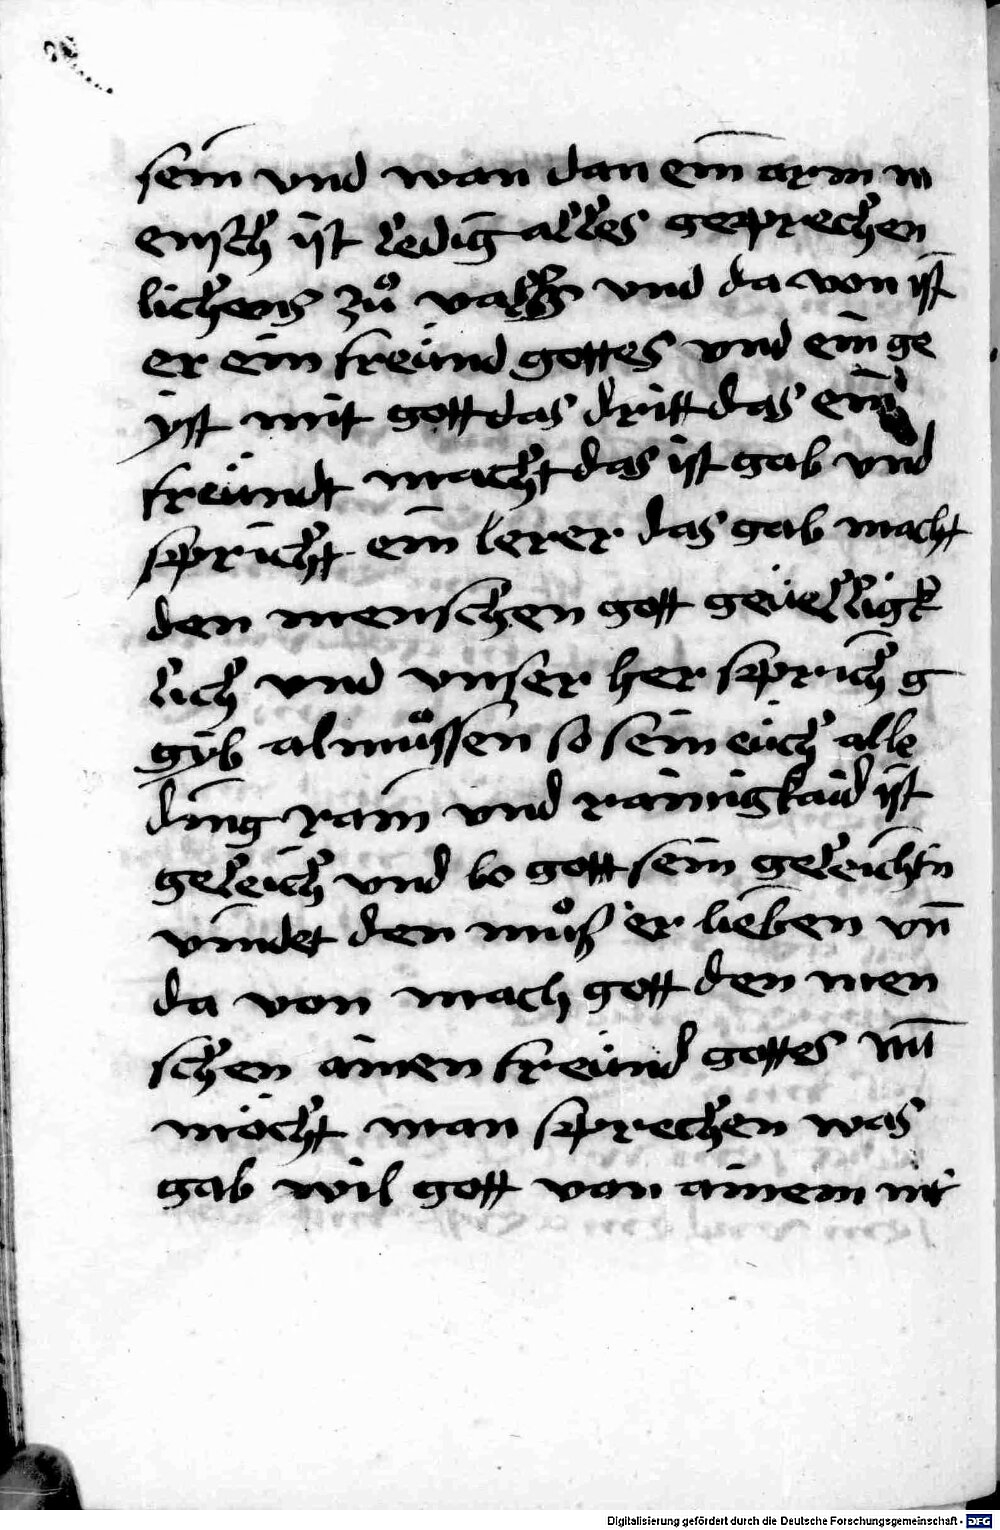 sein vnd wan dan ein arm m
ensch ist ledig alles gesprechen
lichens zuͦ vals vnd da von ist
er ein freünd gottes vnd ein ge
yst mit gott das dritt das ein
freündt macht das ist gab vnd
spricht ein lerer das gab macht
den menschen gott geüelligk
lich vnd vnser her sprich g
gyb almuͦssen so sein eüch alle
ding rain vnd rainigkaid ist
geleich vnd bo gott sein geleichtn
vindet den muͦß er lieben vn̄
da von mach gott den men
schen ainen freünd gottes nū
möcht man sprechen was
gab wil gott von ainem
Digitalisierung gefördert durch die Deutsche Forschungsgemeinschaft - DFG